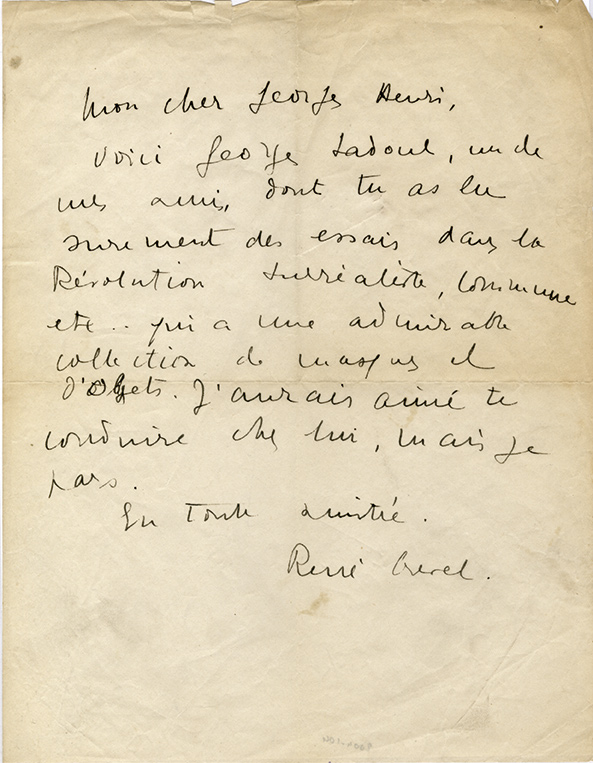 Mon cher Georges Henri,
Voici Georges Sadoul, un de
mes amis, dont tu as lu
surement des essais dans la
Révolution Surréaliste, Commune
etc.. qui a une admirable
collection de masques et
d'objets. J'aurais aimé te
conduire chez lui, mais je
pars.
En toute amitié.
René Crevel.